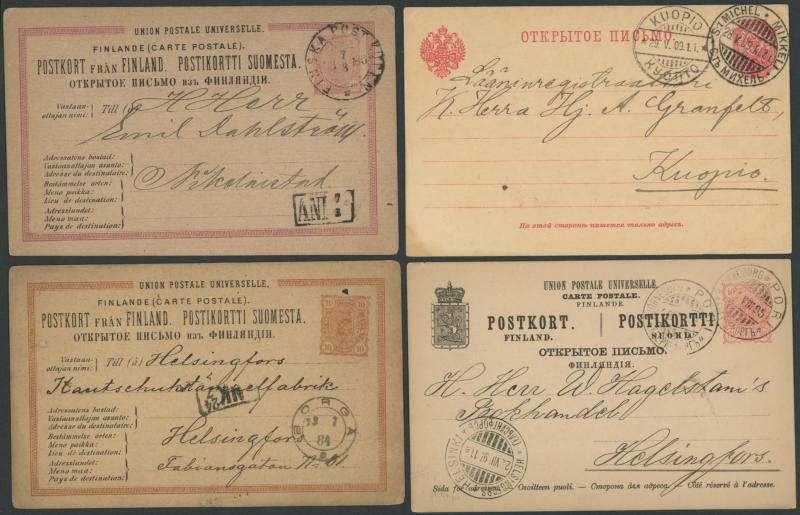 UNION POSTALE UNIVERSELLE.
FINLANDE (CARTE POSTALE).
POSTKORT FRÅN FINLAND. POSTIKORTTI SUOMESTA.
ОТКРЫТОЕ ПИСЬМО изъ ФИНЛЯНДІИ.
Vastaan-
ottajan nimi:
Till (à) H Herr
Emil Dahlström
Adressatens bostad:
Vastaanottajan asunto:
Adresse du destinataire:
Bestämmelse orten:
Meno paikka:
Lieu de destination:
Nikolaistad
Adresslandet:
Meno maa:
Pays de destination:
ANK
ОТКРЫТОЕ ПИСЬМО.
KUOPIO
29.V.09.
КУОПІО
ST MICHEL * MIKKELI
СТЪ МИХЕЛЬ
K. Herra Hj. A. Granfelt,
Kuopio.
На этой сторонѣ пишется только адресъ.
UNION POSTALE UNIVERSELLE.
FINLANDE (CARTE POSTALE).
POSTKORT FRÅN FINLAND. POSTIKORTTI SUOMESTA.
ОТКРЫТОЕ ПИСЬМО изъ ФИНЛЯНДІИ.
10 10
10 10
Vastaan-
ottajan nimi:
Till (à) Helsingfors
Adressatens bostad:
Vastaanottajan asunto:
Adresse du destinataire:
Bestämmelse orten:
Meno paikka:
Lieu de destination:
Helsingfors
Adresslandet:
Meno maa:
Pays de destination:
Fabiansgatan
BORGÅ
84
UNION POSTALE UNIVERSELLE.
CARTE POSTALE.
FINLANDE.
POSTKORT. POSTIKORTTI
FINLAND. SUOMI
ОТКРЫТОЕ ПИСЬМО.
ФИНЛЯНДІЯ.
H. Herr W. Hagelstam's
Bokhandel
Helsingfors.
HELSINGFORS
ГЕЛЬСИНГФОРСЪ
Sida för adressen. — Osoitteen puoli. — Сторона для адреса. — Côté réservé à l'adresse.